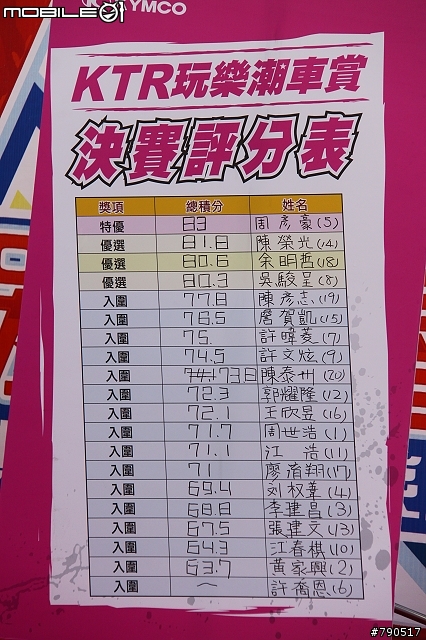 mobile01
KYMCO
KTR玩樂潮車賞
決賽評分表
獎項 總積分 姓名
特優 83 周彥豪(5)
優選 81.8 陳榮光(14)
優選 80.6 余明哲(18)
優選 80.3 吳駿呈(8)
入圍 77.8 陳彥志(19)
入圍 76.5 詹賀凱(15)
入圍 75. 許暐菱(7)
入圍 74.5 許文炫(9)
入圍 73.8 陳泰州(20)
入圍 72.3 郭耀隆(12)
入圍 72.1 王欣昱(16)
入圍 71.7 周世浩(1)
入圍 71.1 江浩(11)
入圍 71 廖 翔(17)
入圍 69.4 刘权葦(4)
入圍 68.8 李建昌(3)
入圍 67.5 張建文(13)
入圍 64.3 江春棋(10)
入圍 63.7 黃家興(2)
入圍 ~ 許喬恩(6)
#790517